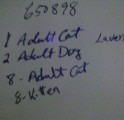 650898
1 Adult Cat
2 Adult Dog
8 - Adult Cat
8 - Kitten